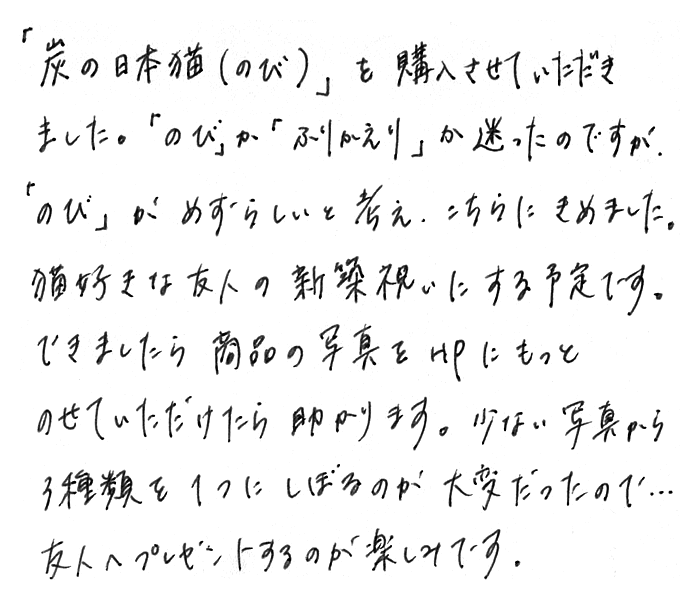 「炭の日本猫(のび)」を購入させていただき
ました。「のび」か「ふりかえり」か迷ったのですが、
「のび」がめずらしいと考え、こちらにきめました。
猫好きな友人の新築祝いにする予定です。
できましたら商品の写真をHPにもっと
のせていただけたら助かります。少ない写真から
3種類を1つにしぼるのが大変だったので…
友人へプレゼントするのが楽しみです。